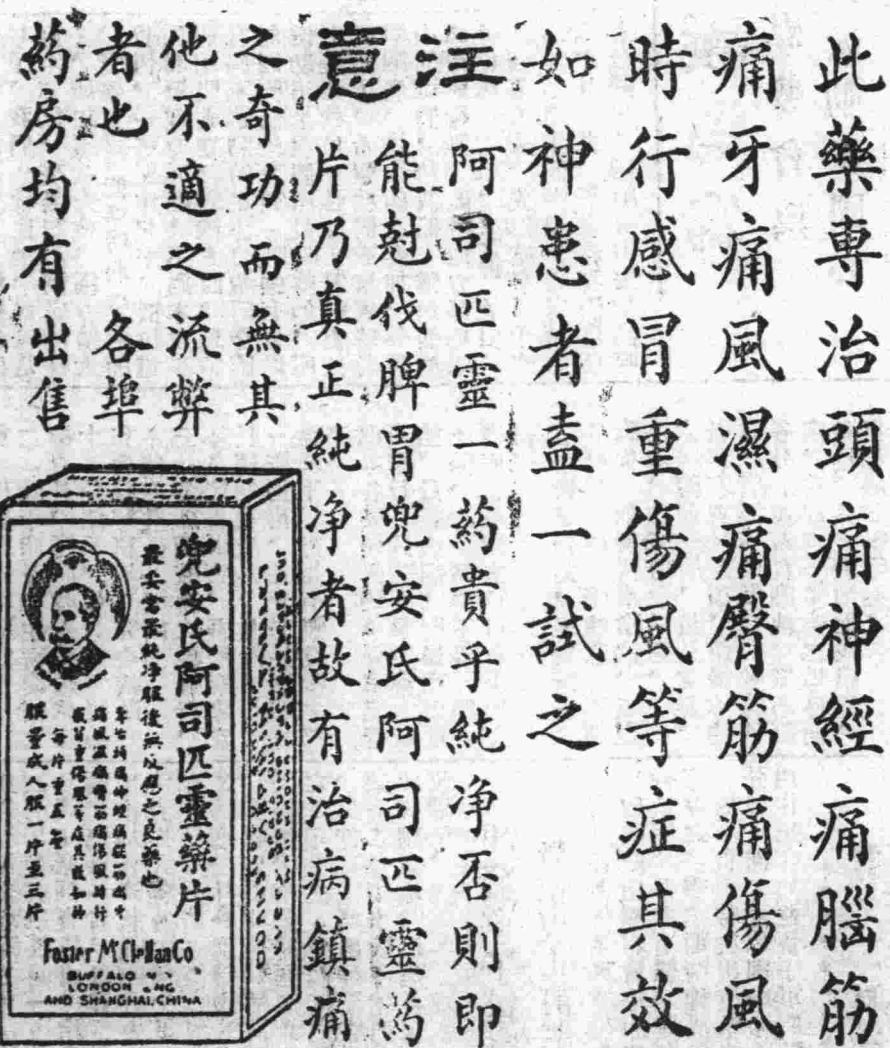 此藥専治頭痛神經痛腦筋
痛牙痛風濕痛臀筋痛傷風
時行感冒重傷風等症其效
如神患者盍一試之
注意
阿司匹靈一葯貴乎純净否則即
能尅伐脾胃兜安氏阿司匹靈葯
片乃真正純净者故有治病鎮痛
之奇功而無其
他不適之流弊
者也 各埠
葯房均有出售
兜安氏阿司匹靈藥片
最妥當最純净服後無反應之良藥也
每片重五
服量成人服一片至三片
Foster McClellan Co
BUFFALO
LONDON ENG
AND SHANGHAI, CHINA